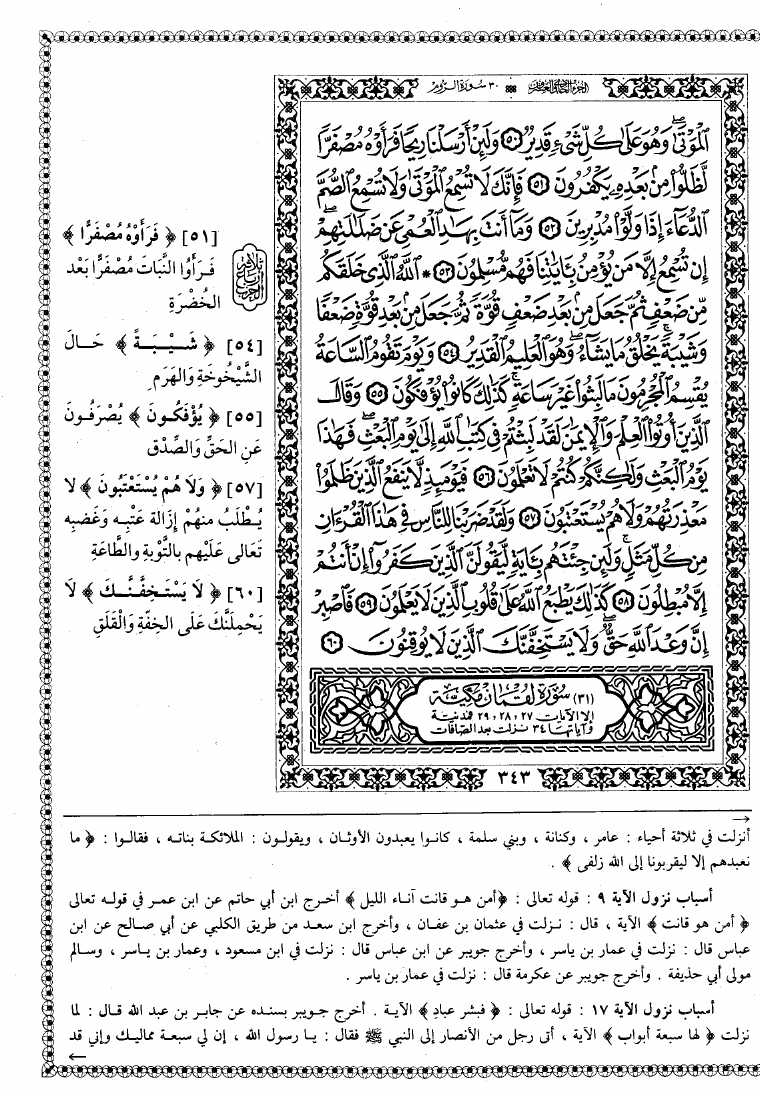 ٣٠ سورة الروم
الْمَوْتَىٰ وَهُوَ عَلَىٰ كُلِّ شَيْءٍ قَدِيرٌ ٥٠ وَلَئِنْ أَرْسَلْنَا رِيحًا فَرَأَوْهُ مُصْفَرًّا
لَّظَلُّوا مِنْ بَعْدِهِ يَكْفُرُونَ ٥١ فَإِنَّكَ لَا تُسْمِعُ الْمَوْتَىٰ وَلَا تُسْمِعُ الصُّمَّ
الدُّعَاءَ إِذَا وَلَّوْا مُدْبِرِينَ ٥٢ وَمَا أَنتَ بِهَادِ الْعُمْيِ عَن ضَلَالَتِهِمْ
إِن تُسْمِعُ إِلَّا مَن يُؤْمِنُ بِآيَاتِنَا فَهُم مُّسْلِمُونَ ٥٣ * اللَّهُ الَّذِي خَلَقَكُم
مِّن ضَعْفٍ ثُمَّ جَعَلَ مِنْ بَعْدِ ضَعْفٍ قُوَّةً ثُمَّ جَعَلَ مِنْ بَعْدِ قُوَّةٍ ضَعْفًا
وَشَيْبَةً يَخْلُقُ مَا يَشَاءُ وَهُوَ الْعَلِيمُ الْقَدِيرُ ٥٤ وَيَوْمَ تَقُومُ السَّاعَةُ
يُقْسِمُ الْمُجْرِمُونَ مَا لَبِثُوا غَيْرَ سَاعَةٍ كَذَٰلِكَ كَانُوا يُؤْفَكُونَ ٥٥ وَقَالَ
الَّذِينَ أُوتُوا الْعِلْمَ وَالْإِيمَٰنَ لَقَدْ لَبِثْتُمْ فِي كِتَٰبِ اللَّهِ إِلَىٰ يَوْمِ الْبَعْثِ فَهَٰذَا
يَوْمُ الْبَعْثِ وَلَٰكِنَّكُمْ كُنتُمْ لَا تَعْلَمُونَ ٥٦ فَيَوْمَئِذٍ لَّا يَنفَعُ الَّذِينَ ظَلَمُوا
مَعْذِرَتُهُمْ وَلَا هُمْ يُسْتَعْتَبُونَ ٥٧ وَلَقَدْ ضَرَبْنَا لِلنَّاسِ فِي هَٰذَا الْقُرْءَانِ
مِن كُلِّ مَثَلٍ وَلَئِن جِئْتَهُم بِآيَةٍ لَّيَقُولَنَّ الَّذِينَ كَفَرُوا إِنْ أَنتُمْ
إِلَّا مُبْطِلُونَ ٥٨ كَذَٰلِكَ يَطْبَعُ اللَّهُ عَلَىٰ قُلُوبِ الَّذِينَ لَا يَعْلَمُونَ ٥٩ فَاصْبِرْ
إِنَّ وَعْدَ اللَّهِ حَقٌّ وَلَا يَسْتَخِفَّنَّكَ الَّذِينَ لَا يُوقِنُونَ ٦٠
(٣١) سُورَة لُقْمَان مَكِيَّة
إلا الآيات ٢٧، ٢٨، ٢٩ فمدنية
وآياتها ٣٤ نزلت بعد الصافات
٣٤٣
[٥١] ﴿ فَرَأَوْهُ مُصْفَرًّا ﴾
فَرَأَوُا النَّبَاتَ مُصْفَرًّا بَعْد
الخُضْرَةِ
[٥٤] ﴿ شَيْبَةً ﴾ حَالَ
الشَّيْخُوخَةِ وَالهَرَمِ
[٥٥] ﴿ يُؤْفَكُونَ ﴾ يُصْرَفُونَ
عَنِ الحَقِّ وَالصِّدْقِ
[٥٧] ﴿ وَلَا هُمْ يُسْتَعْتَبُونَ ﴾ لا
يُطْلَبُ مِنهُمْ إِزَالَة عَتْبِه وَغَضبِه
تَعَالى عَلَيهِم بالتَّوْبةِ والطَّاعَةِ
[٦٠] ﴿ لَا يَسْتَخِفَّنَّكَ ﴾ لَا
يَحْمِلَنَّكَ عَلَى الخِفَّةِ وَالْقَلَقِ
أنزلت في ثلاثة أحياء : عامر ، وكنانة ، وبني سلمة ، كانوا يعبدون الأوثان ، ويقولون : الملائكة بناته ، فقالوا : ﴿ ما
نعبدهم إلا ليقربونا إلى الله زلفى ﴾ .
أسباب نزول الآية ٩ : قوله تعالى : ﴿أمن هو قانت آناء الليل ﴾ أخرج ابن أبي حاتم عن ابن عمر في قوله تعالى
﴿ أمن هو قانت ﴾ الآية ، قال : نزلت في عثمان بن عفان ، وأخرج ابن سعد من طريق الكلبي عن أبي صالح عن ابن
عباس قال : نزلت في عمار بن ياسر ، وأخرج جويبر عن ابن عباس قال : نزلت في ابن مسعود ، وعمار بن ياسر ، وسالم
مولى أبي حذيفة . وأخرج جويبر عن عكرمة قال : نزلت في عمار بن ياسر .
أسباب نزول الآية ١٧ : قوله تعالى : ﴿ فبشر عباد ﴾ الآية . أخرج جويبر بسنده عن جابر بن عبد الله قال : لما
نزلت ﴿ لها سبعة أبواب ﴾ الآية ، أتى رجل من الأنصار إلى النبي ﷺ فقال : يا رسول الله ، إن لي سبعة مماليك وإني قد